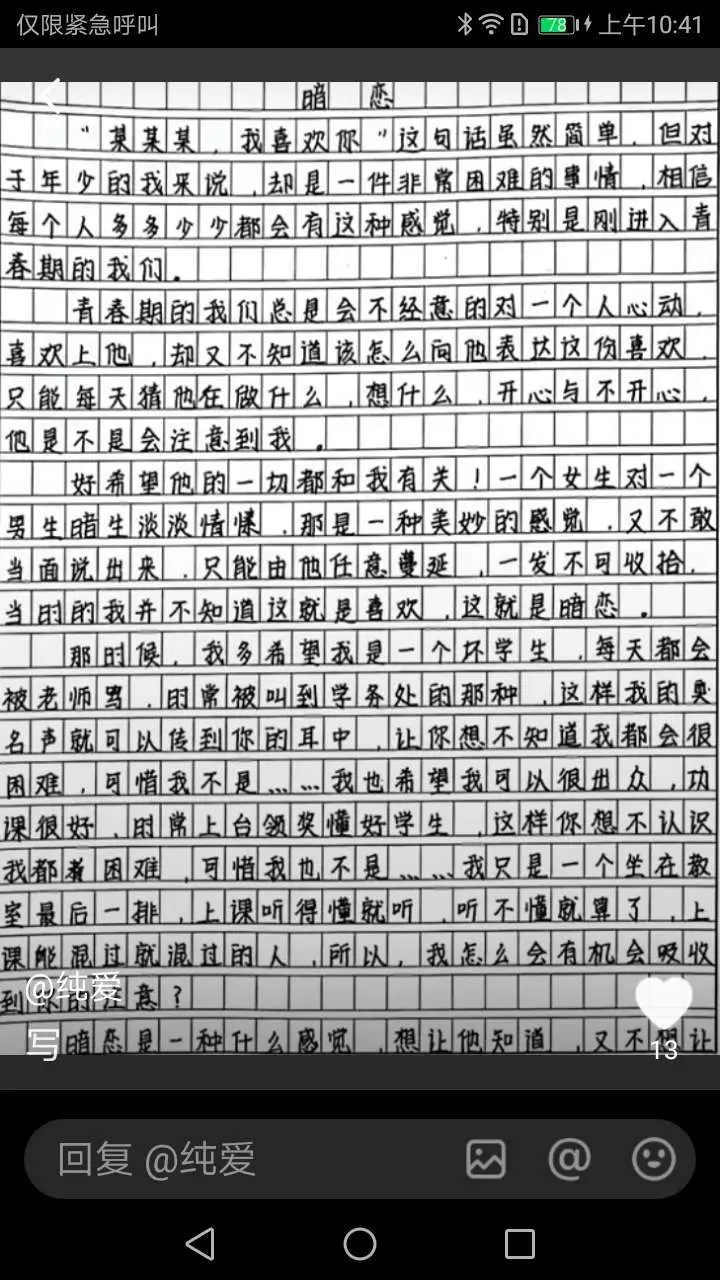 仅限紧急呼叫 78 上午10:41
暗 恋
“某某某，我喜欢你”这句话虽然简单，但对
于年少的我来说，却是一件非常困难的事情，相信
每个人多多少少都会有这种感觉，特别是刚进入青
春期的我们。
青春期的我们总是会不经意的对一个人心动，
喜欢上他，却又不知道该怎么向他表达这份喜欢，
只能每天猜他在做什么，想什么，开心与不开心，
他是不是会注意到我。
好希望他的一切都和我有关！一个女生对一个
男生暗生淡淡情愫，那是一种美妙的感觉，又不敢
当面说出来，只能由他任意蔓延，一发不可收拾，
当时的我并不知道这就是喜欢，这就是暗恋。
那时候，我多希望我是一个坏学生，每天都会
被老师骂，时常被叫到学务处的那种，这样我的臭
名声就可以传到你的耳中，让你想不知道我都会很
困难，可惜我不是……我也希望我可以很出众，功
课很好，时常上台领奖懂好学生，这样你想不认识
我都着困难，可惜我也不是……我只是一个坐在教
室最后一排，上课听得懂就听，听不懂就算了，上
课能混过就混过的人，所以，我怎么会有机会吸收
到你的注意？
@纯爱
写
13
暗恋是一种什么感觉，想让他知道，又不想让
回复 @纯爱